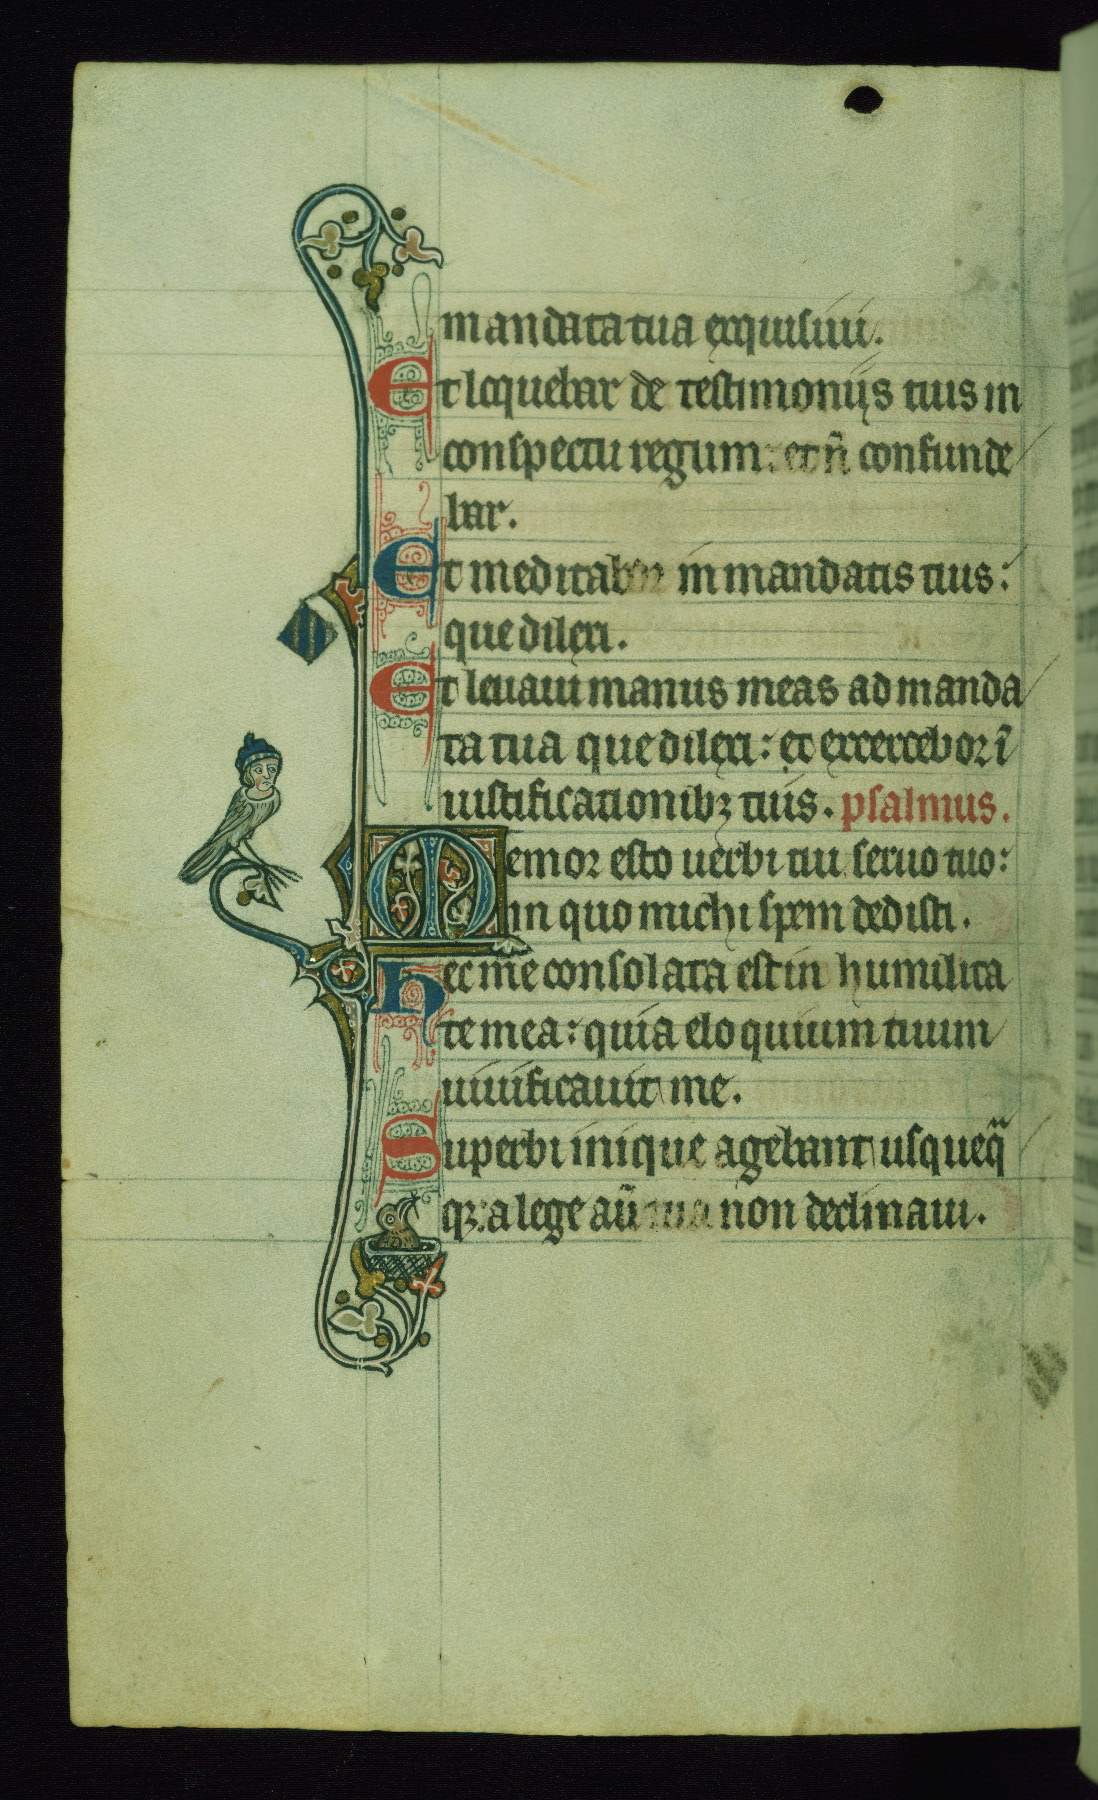 mandata tua exquisiui.
Et loquebar de testimoniis tuis in
conspectu regum: et n̄ confunde
bar.
Et meditabor in mandatis tuis:
que dilexi.
Et leuaui manus meas ad manda
ta tua que dilexi: et exercebor ī
iustificationibꝫ tuis. psalmus.
Memor esto uerbi tui seruo tuo:
in quo michi spem dedisti.
Hec me consolata est in humilita
te mea: quia eloquium tuum
uiuificauit me.
Superbi inique agebant usqueq̄
qꝫ: a lege aū tua non declinaui.